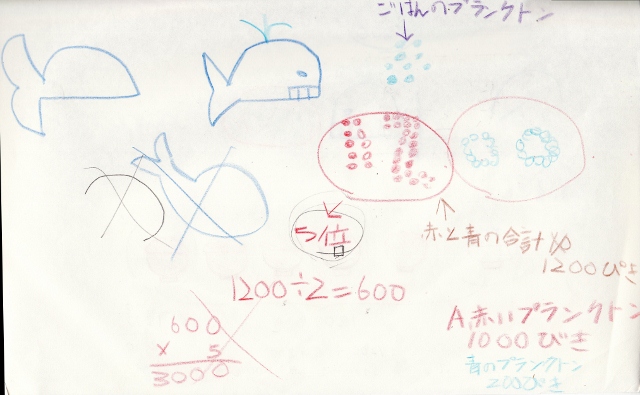 ごはんのプランクトン
12
00
5倍
赤と青の合計が
1200ぴき
1200÷2=600
600
× 5
3000
A赤いプランクトン
1000びき
青のプランクトン
200ぴき